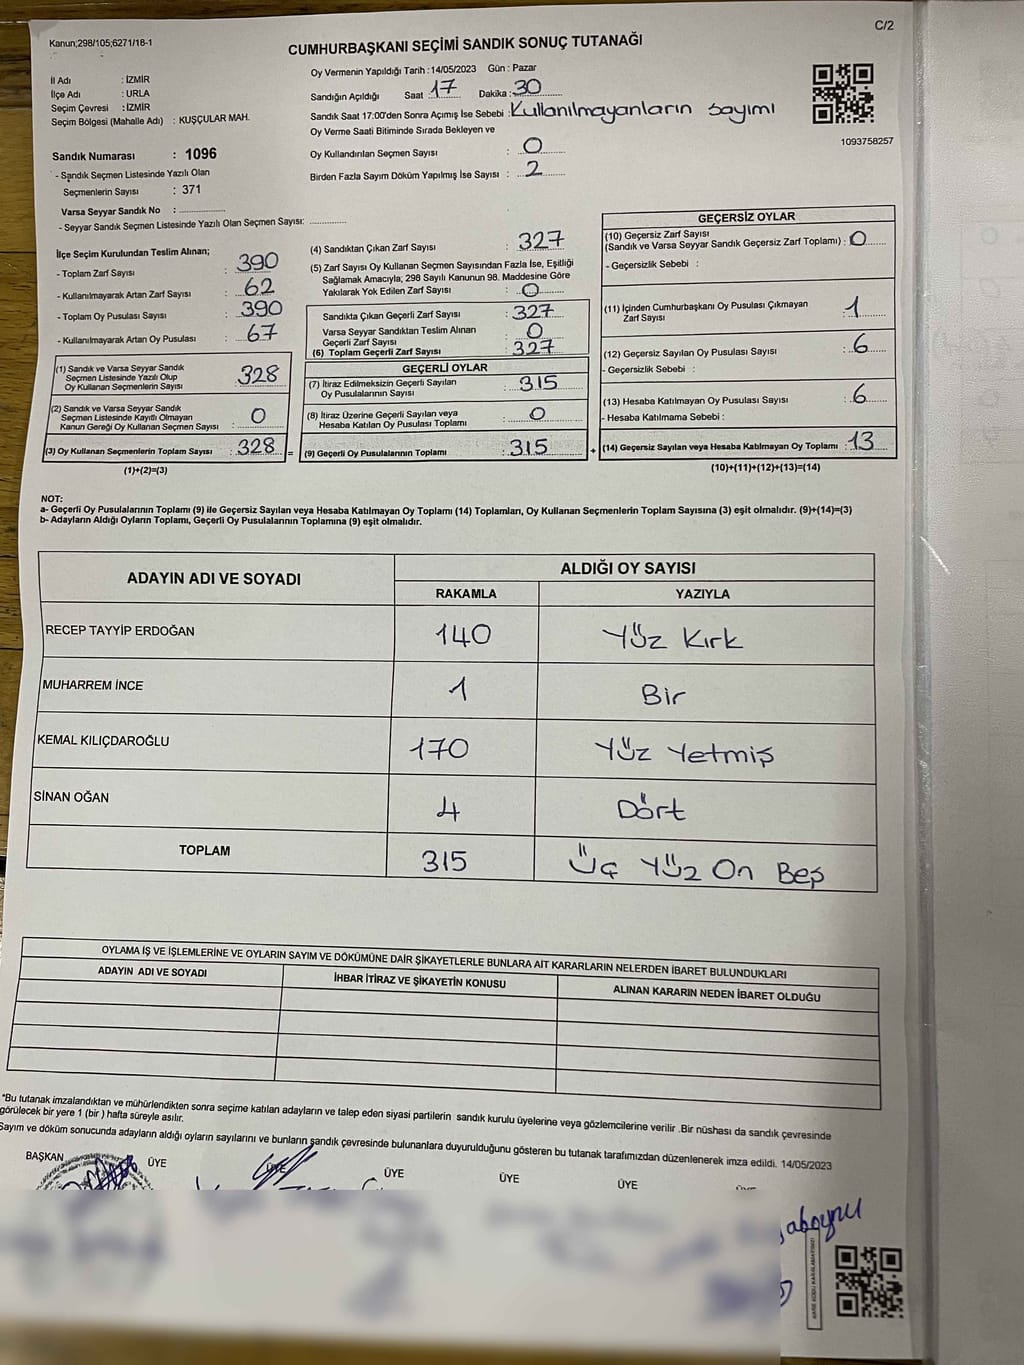 C/2
Kanun;298/105;6271/18-1
CUMHURBAŞKANI SEÇİMİ SANDIK SONUÇ TUTANAĞI
İl Adı : İZMİR
İlçe Adı : URLA
Seçim Çevresi : İZMİR
Seçim Bölgesi (Mahalle Adı) : KUŞÇULAR MAH.
Sandık Numarası : 1096
- Sandık Seçmen Listesinde Yazılı Olan
Seçmenlerin Sayısı : 371
Varsa Seyyar Sandık No :
- Seyyar Sandık Seçmen Listesinde Yazılı Olan Seçmen Sayısı:
Oy Vermenin Yapıldığı Tarih : 14/05/2023 Gün : Pazar
Sandığın Açıldığı Saat 17 Dakika : 30
Sandık Saat 17:00'den Sonra Açımış İse Sebebi : Kullanılmayanların sayımı
Oy Verme Saati Bitiminde Sırada Bekleyen ve
Oy Kullandırılan Seçmen Sayısı : 0
Birden Fazla Sayım Döküm Yapılmış İse Sayısı : 2
1093758257
İlçe Seçim Kurulundan Teslim Alınan;
- Toplam Zarf Sayısı : 390
- Kullanılmayarak Artan Zarf Sayısı : 62
- Toplam Oy Pusulası Sayısı : 390
- Kullanılmayarak Artan Oy Pusulası : 67
(1) Sandık ve Varsa Seyyar Sandık
Seçmen Listesinde Yazılı Olup
Oy Kullanan Seçmenlerin Sayısı : 328
(2) Sandık ve Varsa Seyyar Sandık
Seçmen Listesinde Kayıtlı Olmayan
Kanun Gereği Oy Kullanan Seçmen Sayısı : 0
(3) Oy Kullanan Seçmenlerin Toplam Sayısı : 328 =
(1)+(2)=(3)
(4) Sandıktan Çıkan Zarf Sayısı : 327
(5) Zarf Sayısı Oy Kullanan Seçmen Sayısından Fazla İse, Eşitliği
Sağlamak Amacıyla; 298 Sayılı Kanunun 98. Maddesine Göre
Yakılarak Yok Edilen Zarf Sayısı : 0
Sandıkta Çıkan Geçerli Zarf Sayısı : 327
Varsa Seyyar Sandıktan Teslim Alınan
Geçerli Zarf Sayısı : 0
(6) Toplam Geçerli Zarf Sayısı : 327
GEÇERLİ OYLAR
(7) İtiraz Edilmeksizin Geçerli Sayılan
Oy Pusulalarının Sayısı : 315
(8) İtiraz Üzerine Geçerli Sayılan veya
Hesaba Katılan Oy Pusulası Toplamı : 0
(9) Geçerli Oy Pusulalarının Toplamı : 315 +
GEÇERSİZ OYLAR
(10) Geçersiz Zarf Sayısı
(Sandık ve Varsa Seyyar Sandık Geçersiz Zarf Toplamı) : 0
- Geçersizlik Sebebi :
(11) İçinden Cumhurbaşkanı Oy Pusulası Çıkmayan
Zarf Sayısı : 1
(12) Geçersiz Sayılan Oy Pusulası Sayısı : 6
- Geçersizlik Sebebi :
(13) Hesaba Katılmayan Oy Pusulası Sayısı : 6
- Hesaba Katılmama Sebebi :
(14) Geçersiz Sayılan veya Hesaba Katılmayan Oy Toplamı : 13
(10)+(11)+(12)+(13)=(14)
NOT:
a- Geçerli Oy Pusulalarının Toplamı (9) ile Geçersiz Sayılan veya Hesaba Katılmayan Oy Toplamı (14) Toplamları, Oy Kullanan Seçmenlerin Toplam Sayısına (3) eşit olmalıdır. (9)+(14)=(3)
b- Adayların Aldığı Oyların Toplamı, Geçerli Oy Pusulalarının Toplamına (9) eşit olmalıdır.
ADAYIN ADI VE SOYADI ALDIĞI OY SAYISI
RAKAMLA YAZIYLA
RECEP TAYYİP ERDOĞAN 140 Yüz Kırk
MUHARREM İNCE 1 Bir
KEMAL KILIÇDAROĞLU 170 Yüz Yetmiş
SİNAN OĞAN 4 Dört
TOPLAM 315 Üç Yüz On Beş
OYLAMA İŞ VE İŞLEMLERİNE VE OYLARIN SAYIM VE DÖKÜMÜNE DAİR ŞİKAYETLERLE BUNLARA AİT KARARLARIN NELERDEN İBARET BULUNDUKLARI
ADAYIN ADI VE SOYADI İHBAR İTİRAZ VE ŞİKAYETİN KONUSU ALINAN KARARIN NEDEN İBARET OLDUĞU
*Bu tutanak imzalandıktan ve mühürlendikten sonra seçime katılan adayların ve talep eden siyasi partilerin sandık kurulu üyelerine veya gözlemcilerine verilir .Bir nüshası da sandık çevresinde
görülecek bir yere 1 (bir ) hafta süreyle asılır.
Sayım ve döküm sonucunda adayların aldığı oyların sayılarını ve bunların sandık çevresinde bulunanlara duyurulduğunu gösteren bu tutanak tarafımızdan düzenlenerek imza edildi. 14/05/2023
BAŞKAN ÜYE ÜYE ÜYE ÜYE ÜYE